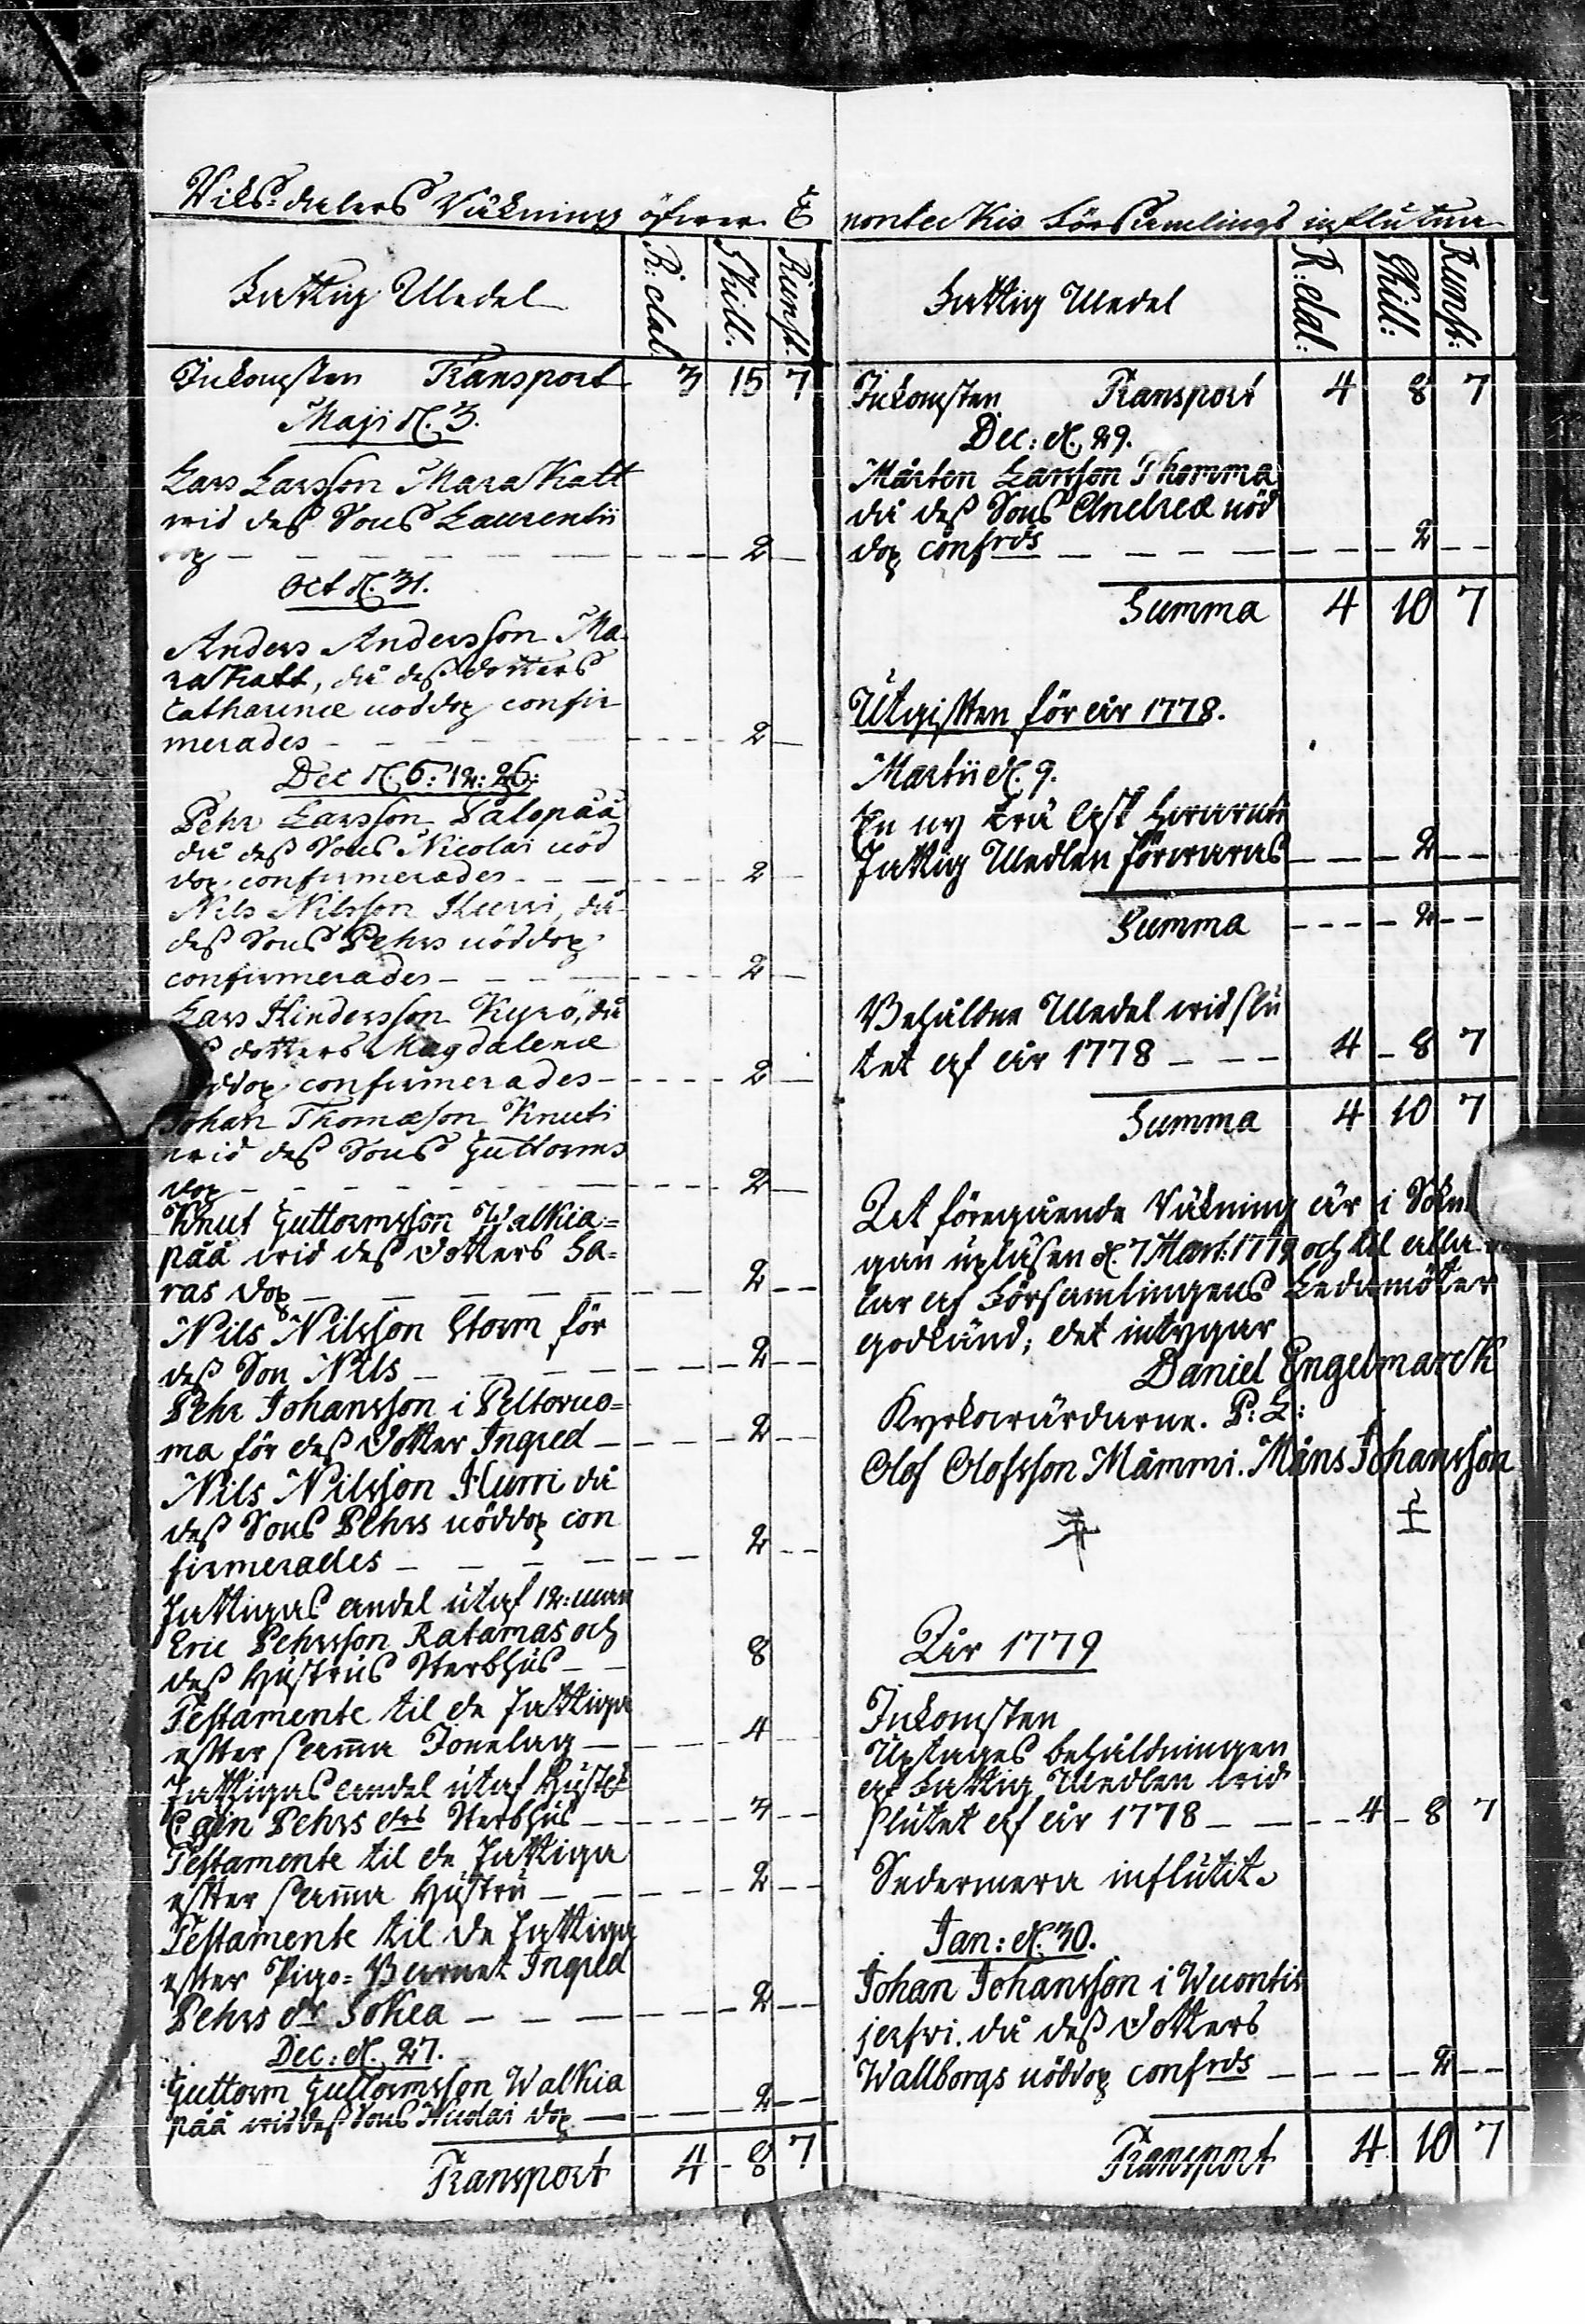 Riks-dalers Räkning öfwer E
Fattig Medel
R:dal.
Skill.
Runst.
Inkomsten Transport 3 15 7
Maji d. 3.
Lars Larsson Marakatt
wid dess Sons Laurentii
dop - - - - - 2 -
Oct d. 31.
Anders Andersson Ma
rakatt, då dess dotters
Catharinæ nöddop confir
merades - - - 2 -
Dec d. 6: 12: 26:
Pehr Larsson Palopää
då dess Sons Nicolai nöd
dop confirmerades - - - 2 -
Nils Nilsson Hurri, då
dess Sons Pehrs nöddop
confirmerades - - - 2 -
Lars Hindersson Kyrö, då
dotters Magdalenæ
dop confirmerades - - - 2 -
Johan Thomæson Knuti
wid dess Sons Guttorms
dop - - - - - 2 -
Knut Guttormsson Walkia=
pää wid dess dotters Sa=
ras dop - - - - - 2 - -
Nils Nilsson Storm för
dess Son Nils - - - - 2 - -
Pehr Johansson i Peltovuo=
ma för dess dotter Ingred - - - 2 - -
Nils Nilsson Hurri då
dess Sons Pehrs nöddop con
firmerades - - - - 2 - -
Fattigas andel utaf 12:man
Eric Pehrsson Ratamas och
dess Hustrus Sterbhus - - 8
Testamente til de Fattiga
efter samma Jonelag - - - 4 - -
Fattigas andel utaf Hustr
Cajin Pehrs drs Sterbhus - - - 3 - -
Testamente til de Fattiga
efter samma Hustru - - - 2 - -
Testamente til de Fattiga
efter Pigo=Barnet Ingred
Pehrs dr Sokea - - - - 2 - -
Dec: d. 27.
Guttorm Guttormsson Walkia
pää wid dess Sons Nicolai dop - - - 2 - -
Transport 4 - 8 7
nonteckis Församlings influtna
Fattig Medel
R:dal:
Skill:
Runst:
Inkomsten Transport 4 8 7
Dec: d. 29.
Mårten Larsson Thomma
då dess Sons Andreæ nöd
dop confrds - - - - 2 - -
Summa 4 10 7
Utgiften för år 1778.
Martii d. 9.
En ny Trä ask hwaruti
Fattig Medlen förwaras - - - 2 - -
Summa - - - - 2 - -
Behåldne Medel wid slu
tet af år 1778 - - - 4 - 8 7
Summa 4 10 7
Det föregående Räkning är i Sokn
gån upläsen d. 7 Mart: 1779 och til alla
lar af Församlingens Ledamöter
godkänd; det intygar
Daniel Engelmarck
Kyrkowärdarne. P: L:
Olof Olofsson Mämmi. Måns Johansson
År 1779
Inkomsten
Uptages behåldningen
af Fattig Medlen wid
slutet af år 1778 - - - 4 - 8 7
Sedermera influtit.
Jan: d. 30.
Johan Johansson i Wuontis
jerfwi. då dess dotters
Wallborgs nöddop confrds - - - 2 - -
Transport 4 10 7